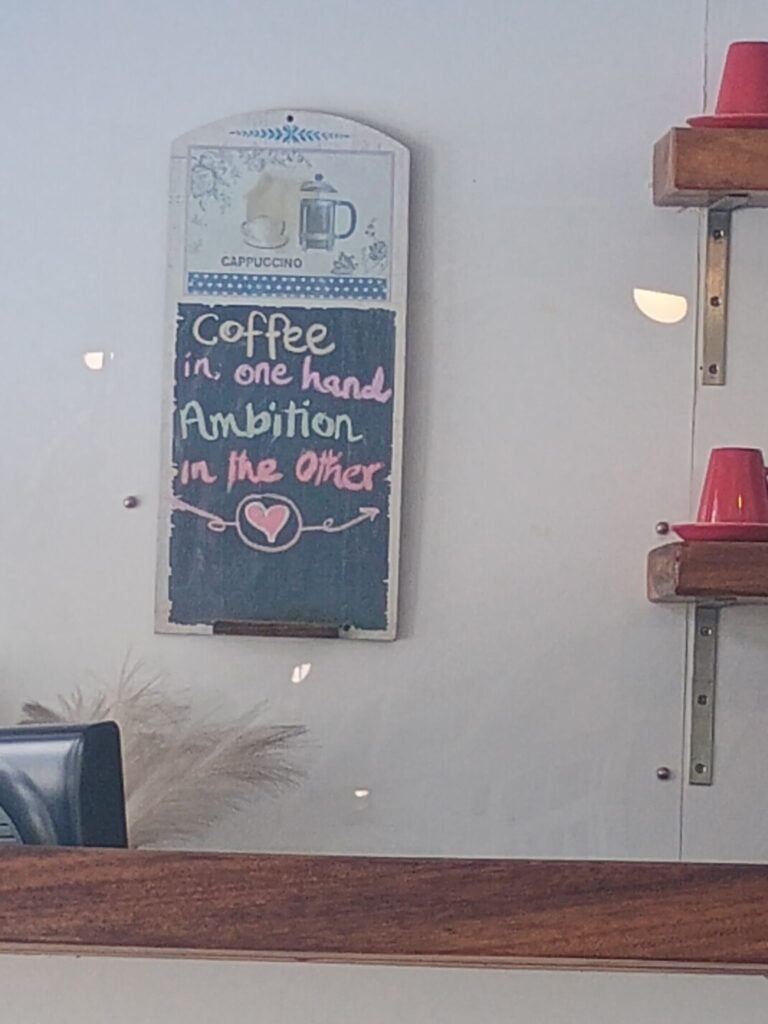 CAPPUCCINO
Coffee
in, one hand
Ambition
in the Other